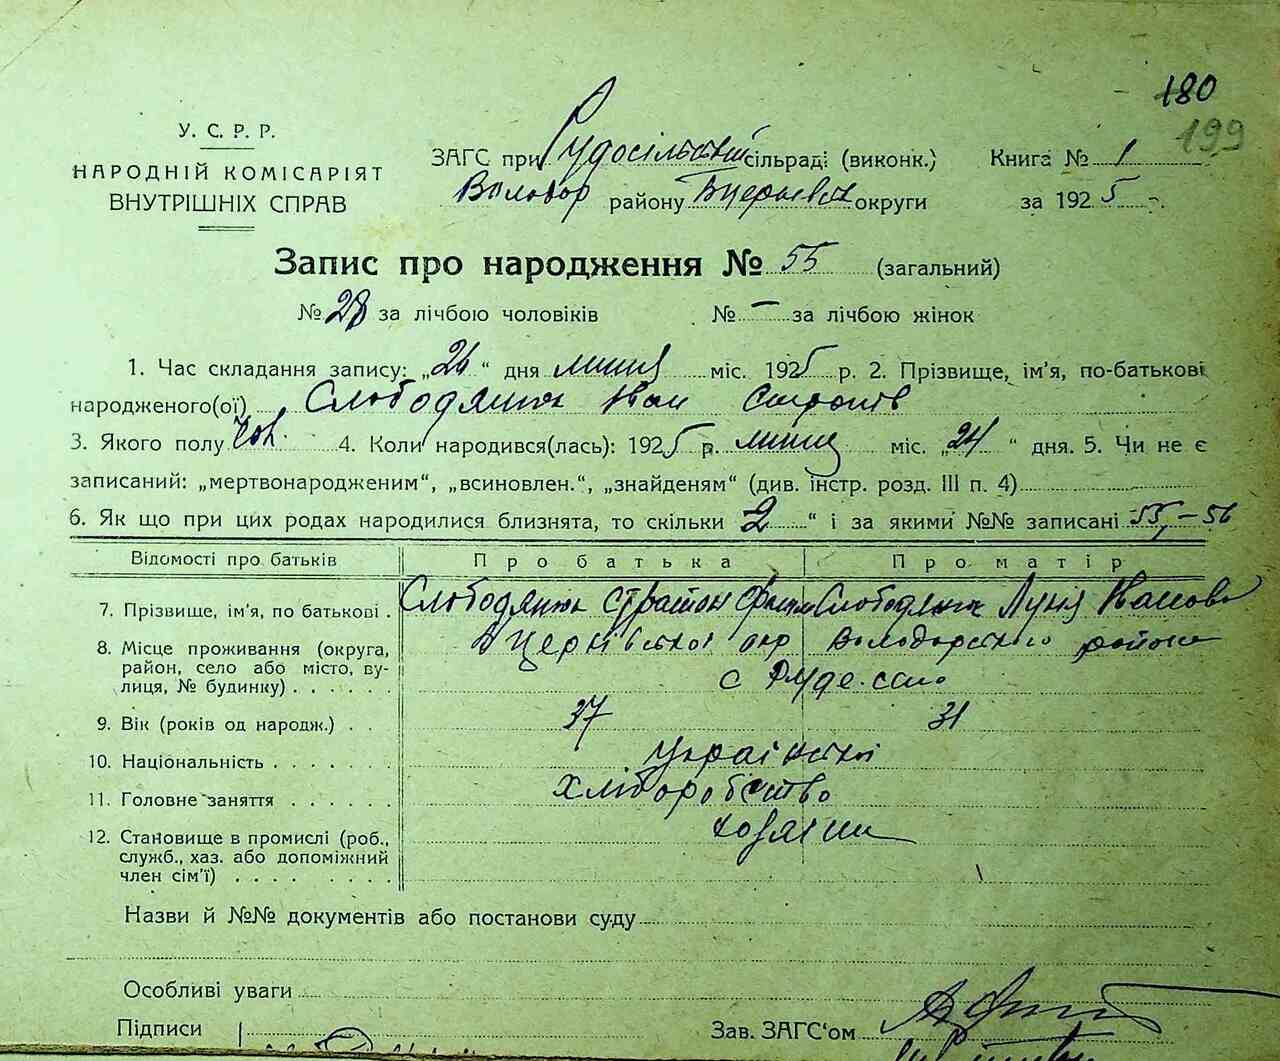 180
199
У. С. Р. Р.
НАРОДНІЙ КОМІСАРІЯТ
ВНУТРІШНІХ СПРАВ
ЗАГС при Рудосільській сільраді (виконк.) Книга № 1
Володор району Бцерківськ округи за 1925
Запис про народження № 55 (загальний)
№ 28 за лічбою чоловіків № — за лічбою жінок
1. Час складання запису: „26“ дня липня міс. 1925 р. 2. Прізвище, ім'я, по-батькові
народженого(ої) Слободянюк Іван
3. Якого полу чол. 4. Коли народився(лась): 1925 р. липня міс. „24“ дня. 5. Чи не є
записаний: „мертвонародженим“, „всиновлен.“, „знайденям“ (див. інстр. розд. III п. 4)
6. Як що при цих родах народилися близнята, то скільки 2 “ і за якими №№ записані 55, – 56
Відомості про батьків Про батька Про матір
7. Прізвище, ім'я, по батькові . Слободянюк Страйон Слободянюк Лукія Іванова
8. Місце проживання (округа, БЦерківської окр Володарського району
район, село або місто, ву-
лиця, № будинку) . . . . . . с Руде-село
9. Вік (років од народж.) . . 37 31
10. Національність . . . . . . . української
11. Головне заняття . . . . . . хліборобство
12. Становище в промислі (роб., хозяїни
служб., хаз. або допоміжний
член сім'ї) . . . . . . . . .
Назви й №№ документів або постанови суду
Особливі уваги
Підписи Зав. ЗАГС'ом